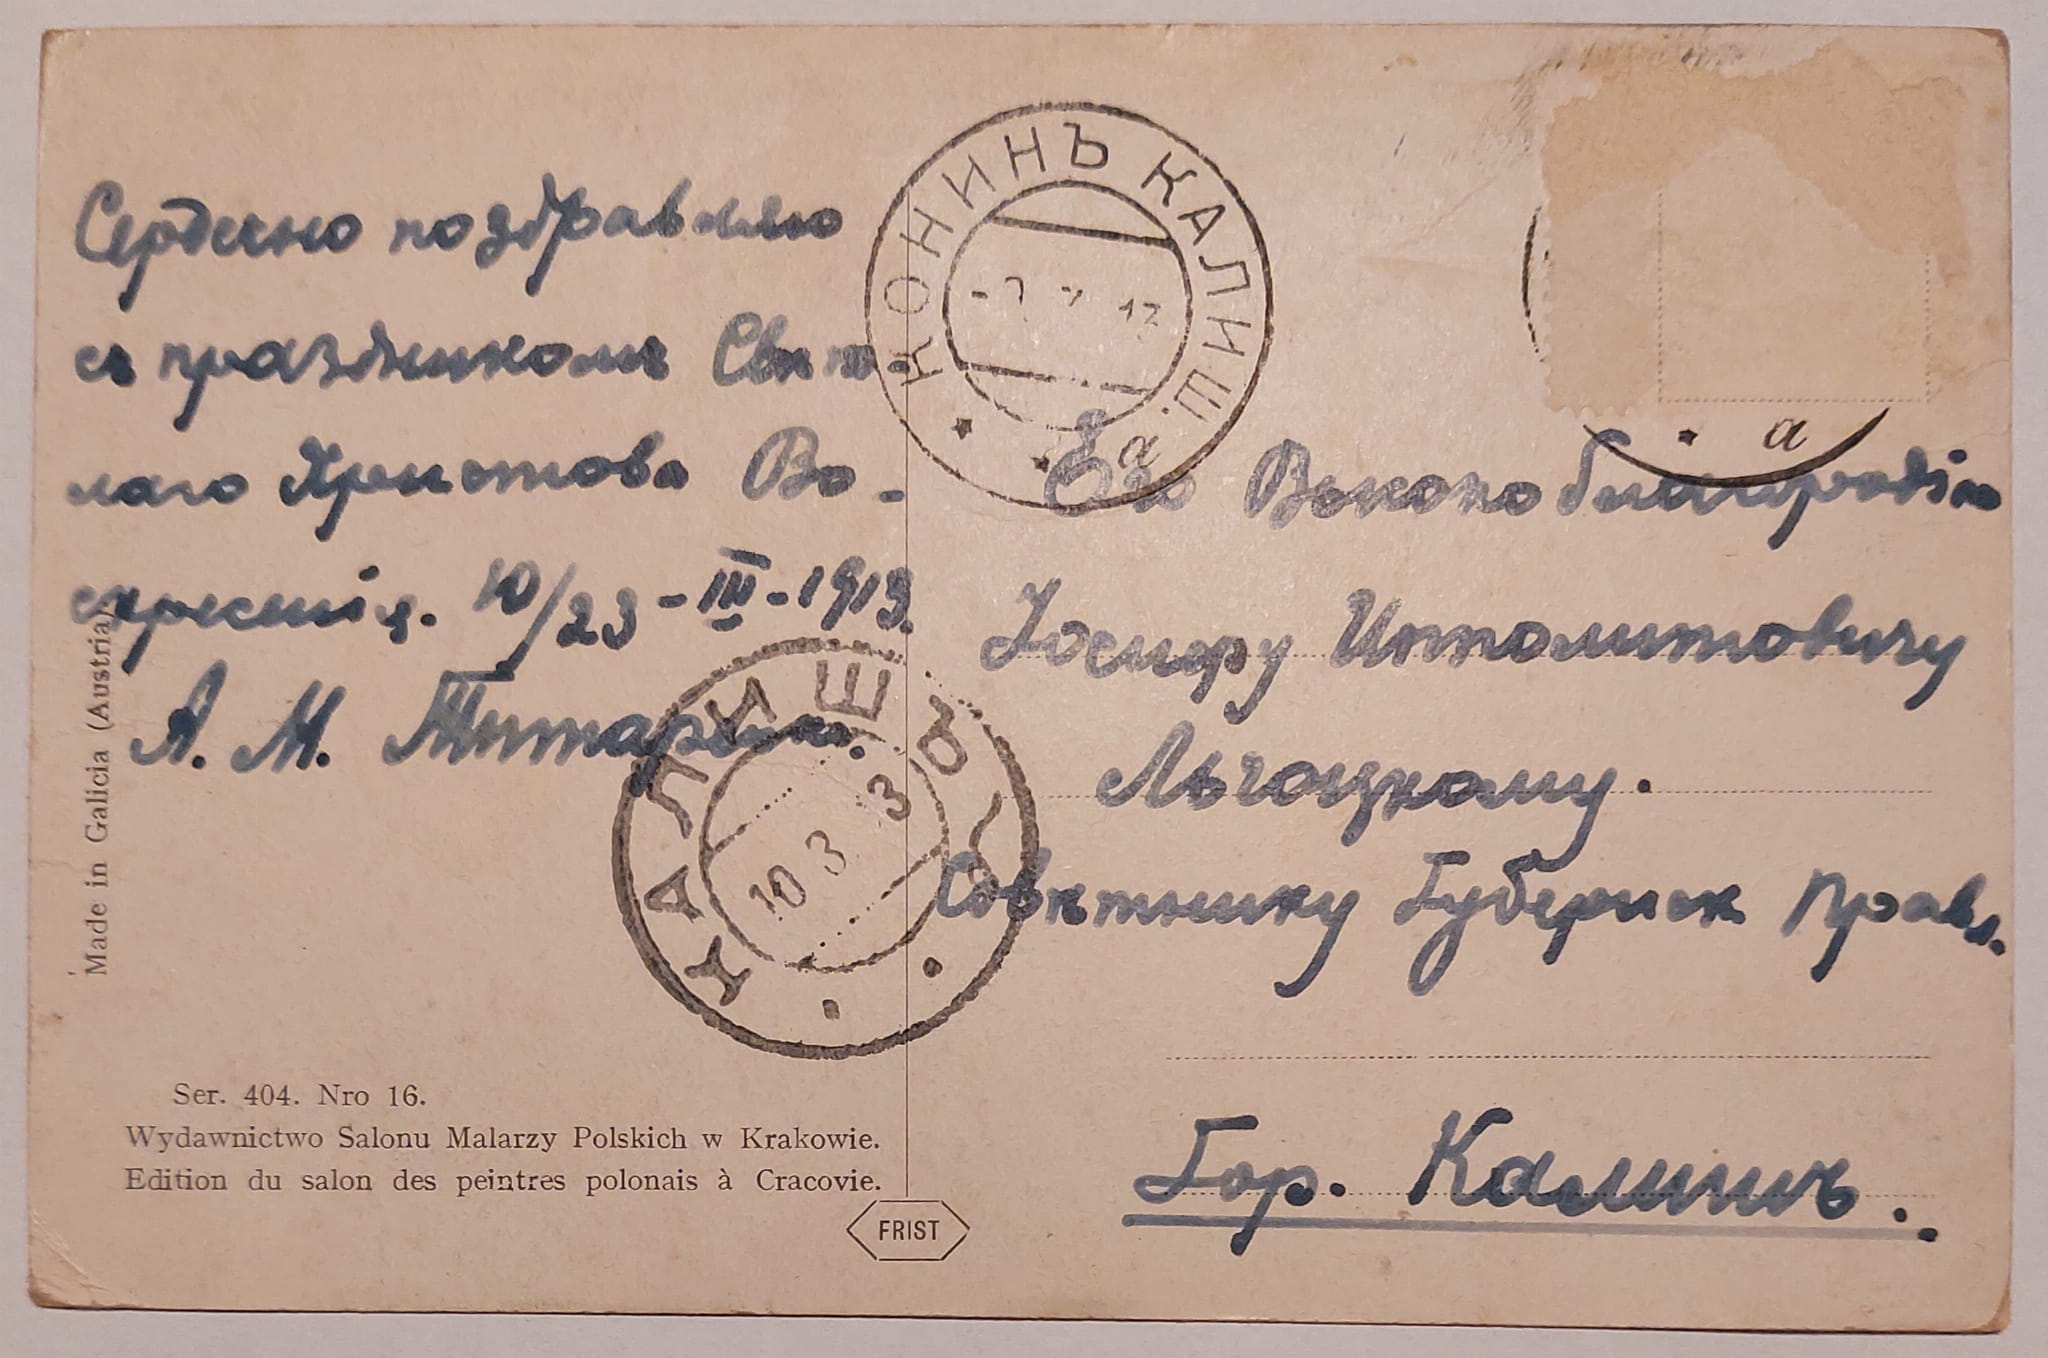 Сердечно поздравляю
съ праздникомъ Свѣт-
лаго Христова Во-
скресенія. 10/23-III-1913.
А. М.
Его Высокоблагородію
Іосифу Ипполитовичу
Льгоцкому.
Совѣтнику Губернск Правл.
Гор. Калишъ.
КОНИНЪ КАЛИШ.
а
а
КАЛИШЪ
10 3 3
Made in Galicia (Austria)
Ser. 404. Nro 16.
Wydawnictwo Salonu Malarzy Polskich w Krakowie.
Edition du salon des peintres polonais à Cracovie.
FRIST